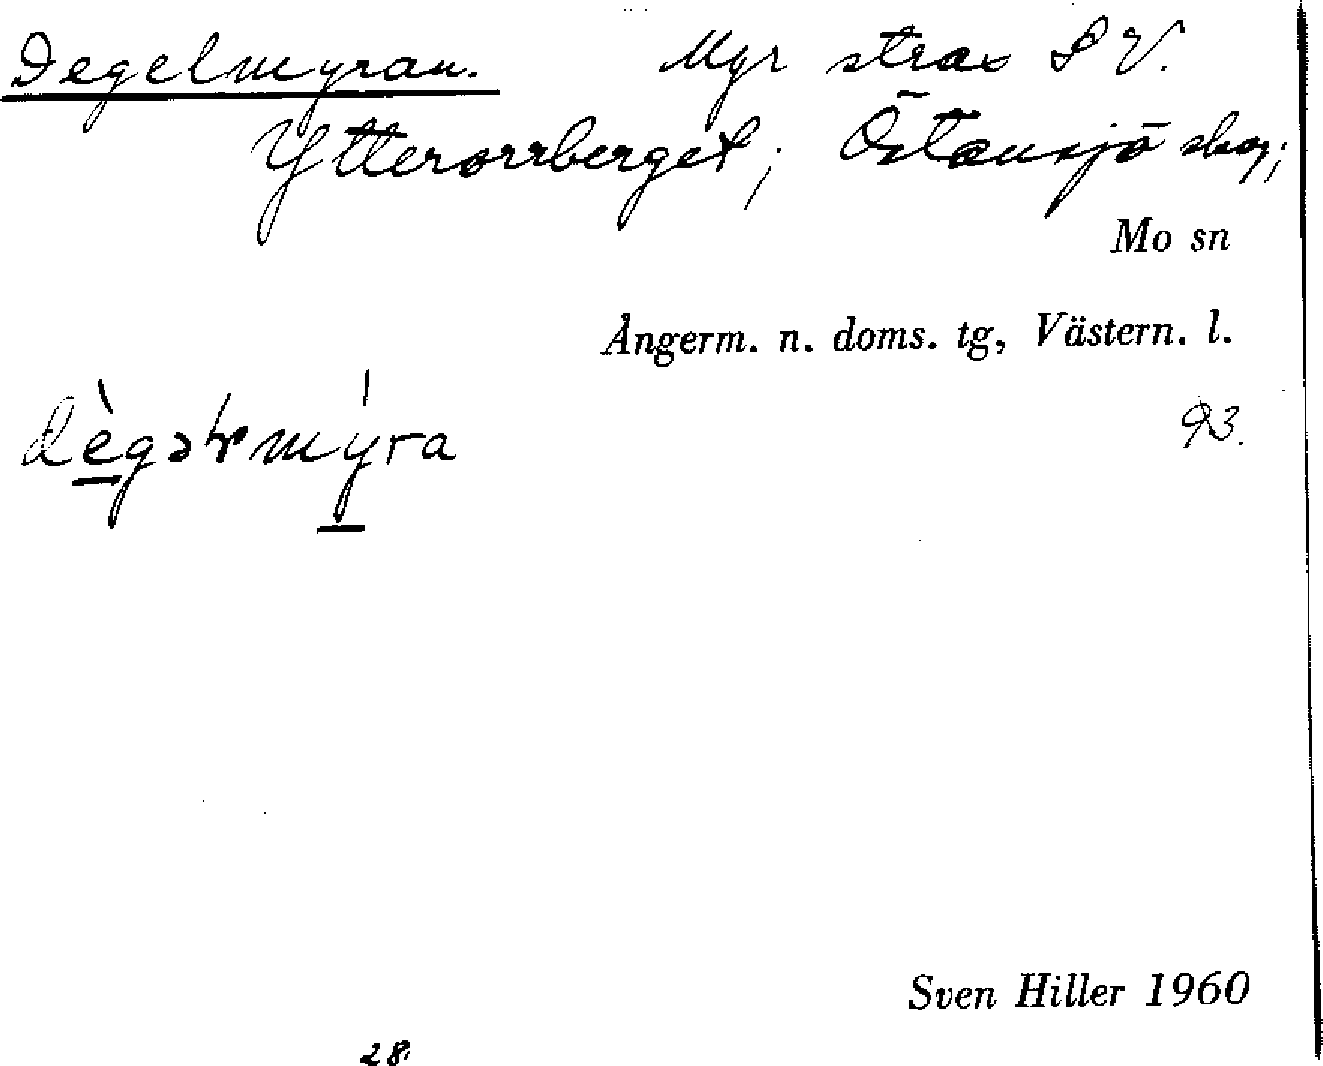 Degelmyran. Myr strax SV.
Ytterorrberget; Östansjö skog;
Mo sn
Ångerm. n. doms. tg, Västern. l.
93.
dègəlmýra
Sven Hiller 1960
28